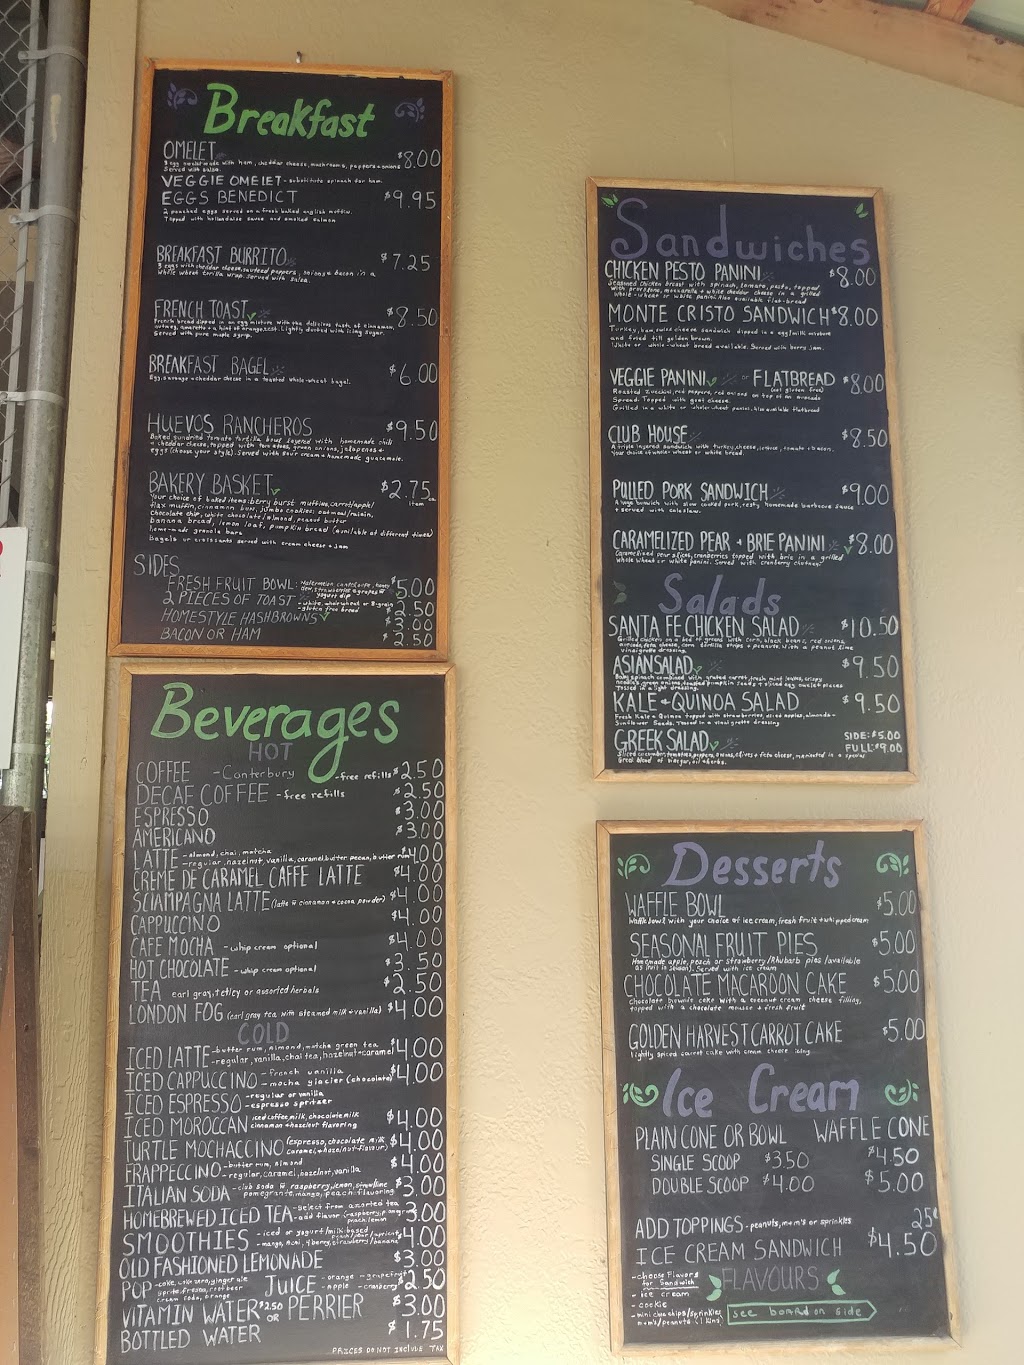 Breakfast
OMELET $8.00
3 egg omelet made with ham, cheddar cheese, mushrooms, peppers + onions
Served with salsa.
VEGGIE OMELET - substitute spinach for ham.
EGGS BENEDICT $9.95
2 poached eggs served on a fresh baked english muffin.
Topped with hollandaise sauce and smoked salmon
BREAKFAST BURRITO $7.25
3 eggs with cheddar cheese, sauteed peppers, onions + bacon in a
whole wheat tortilla wrap. Served with salsa.
FRENCH TOAST $8.50
French bread dipped in an egg mixture with the delicious taste of cinnamon,
nutmeg, amaretto + a hint of orange zest. Lightly dusted with icing sugar.
Served with pure maple syrup.
BREAKFAST BAGEL $6.00
Egg, sausage + cheddar cheese in a toasted whole-wheat bagel.
HUEVOS RANCHEROS $9.50
Baked sundried tomato tortilla bowl layered with homemade chili
+ cheddar cheese, topped with tomatoes, green onions, jalapenos +
eggs (choose your style). Served with sour cream + homemade guacamole.
BAKERY BASKET $2.75 ea item
Your choice of baked items: berry burst muffins, carrot/apple/
flax muffin, cinnamon buns, jumbo cookies: oatmeal/raisin,
chocolate chip, white chocolate/almond, peanut butter
banana bread, lemon loaf, pumpkin bread (available at different times)
home-made granola bars
Bagels or croissants served with cream cheese + jam
SIDES
FRESH FRUIT BOWL: Watermelon, cantaloupe, honey $5.00
dew, strawberries + grapes w
yogurt dip
2 PIECES OF TOAST - white, whole wheat or 8-grain $2.50
- gluten free bread
HOMESTYLE HASHBROWNS $3.00
BACON OR HAM $2.50
Beverages
HOT
COFFEE - Canterbury - free refills $2.50
DECAF COFFEE - free refills $2.50
ESPRESSO $3.00
AMERICANO $3.00
LATTE - almond, chai, matcha $4.00
- regular, hazelnut, vanilla, caramel, butter pecan, butter rum
CREME DE CARAMEL CAFFE LATTE $4.00
SCIAMPAGNA LATTE (latte w cinnamon + cocoa powder) $4.00
CAPPUCCINO $4.00
CAFE MOCHA - whip cream optional $4.00
HOT CHOCOLATE - whip cream optional $3.50
TEA earl gray, tetley or assorted herbals $2.50
LONDON FOG (earl gray tea with steamed milk + vanilla) $4.00
COLD
ICED LATTE - butter rum, almond, matcha green tea $4.00
- regular, vanilla, chai tea, hazelnut + caramel
ICED CAPPUCCINO - french vanilla $4.00
- mocha glacier (chocolate)
ICED ESPRESSO - regular or vanilla
- espresso spritzer
ICED MOROCCAN iced coffee, milk, chocolate milk $4.00
cinnamon + hazelnut flavoring
TURTLE MOCHACCINO (espresso, chocolate milk $4.00
caramel + hazelnut flavour)
FRAPPECCINO - butter rum, almond $4.00
- regular, caramel, hazelnut, vanilla
ITALIAN SODA - club soda w raspberry, lemon, $3.00
pomegranate, mango, peach flavoring
HOMEBREWED ICED TEA - select from assorted tea $3.00
- add flavor
SMOOTHIES - iced or yogurt/milk based $4.00
- mango, acai, 4 berry, strawberry/banana
OLD FASHIONED LEMONADE $3.00
POP - coke, coke zero, ginger ale JUICE - orange - grapefruit $2.50
sprite, fresca, root beer - apple - cranberry
cream soda, orange
VITAMIN WATER $2.50 OR PERRIER $3.00
BOTTLED WATER $1.75
PRICES DO NOT INCLUDE TAX
Sandwiches
CHICKEN PESTO PANINI $8.00
Seasoned chicken breast with spinach, tomato, pesto, topped
with provolone, mozzarella + white cheddar cheese in a grilled
whole-wheat or white panini. Also available flat-bread
MONTE CRISTO SANDWICH $8.00
Turkey, ham, swiss cheese sandwich dipped in a egg/milk mixture
and fried till golden brown.
White or whole-wheat bread available. Served with berry jam.
VEGGIE PANINI or FLATBREAD $8.00
(not gluten free)
Roasted zucchini, red peppers, red onions on top of an avocado
Spread. Topped with goat cheese.
Grilled in a white or whole-wheat panini, also available flatbread
CLUB HOUSE $8.50
A triple layered sandwich with turkey, cheese, lettuce, tomato + bacon.
Your choice of whole-wheat or white bread.
PULLED PORK SANDWICH $9.00
A huge sandwich with slow cooked pork, zesty, homemade barbecue sauce
+ served with coleslaw.
CARAMELIZED PEAR + BRIE PANINI $8.00
Caramelized pear slices, cranberries topped with brie in a grilled
whole wheat or white panini. Served with cranberry chutney.
Salads
SANTA FE CHICKEN SALAD $10.50
Grilled chicken on a bed of greens with corn, black beans, red onions,
avocado, feta cheese, corn tortilla strips + peanuts. With a peanut lime
vinaigrette dressing.
ASIAN SALAD $9.50
Baby spinach combined with grated carrot, fresh mint leaves, crispy
noodles, green onions, toasted pumpkin seeds + sliced egg omelet pieces
Tossed in a light dressing.
KALE + QUINOA SALAD $9.50
Fresh Kale + Quinoa topped with strawberries, dried apples, almonds +
Sunflower Seeds. Tossed in a vinaigrette dressing
GREEK SALAD SIDE: $5.00
FULL: $9.00
Sliced cucumber, tomatoes, peppers, onions, olives + feta cheese, marinated in a special
Greek blend of vinegar, oil + herbs.
Desserts
WAFFLE BOWL $5.00
Waffle bowl with your choice of ice cream, fresh fruit + whipped cream
SEASONAL FRUIT PIES $5.00
Homemade apple, peach or Strawberry/Rhubarb pies (available
as fruit in season). Served with ice cream
CHOCOLATE MACAROON CAKE $5.00
Chocolate brownie cake with a coconut cream cheese filling,
topped with a chocolate mousse + fresh fruit
GOLDEN HARVEST CARROT CAKE $5.00
lightly spiced carrot cake with cream cheese icing
Ice Cream
PLAIN CONE OR BOWL WAFFLE CONE
SINGLE SCOOP $3.50 $4.50
DOUBLE SCOOP $4.00 $5.00
ADD TOPPINGS - peanuts, m+m's or sprinkles 25¢
ICE CREAM SANDWICH $4.50
- choose flavors
for Sandwich
- ice cream
- cookie
- mini choc chips/sprinkles
m+m's/peanuts (1 item)
FLAVOURS
see board on side